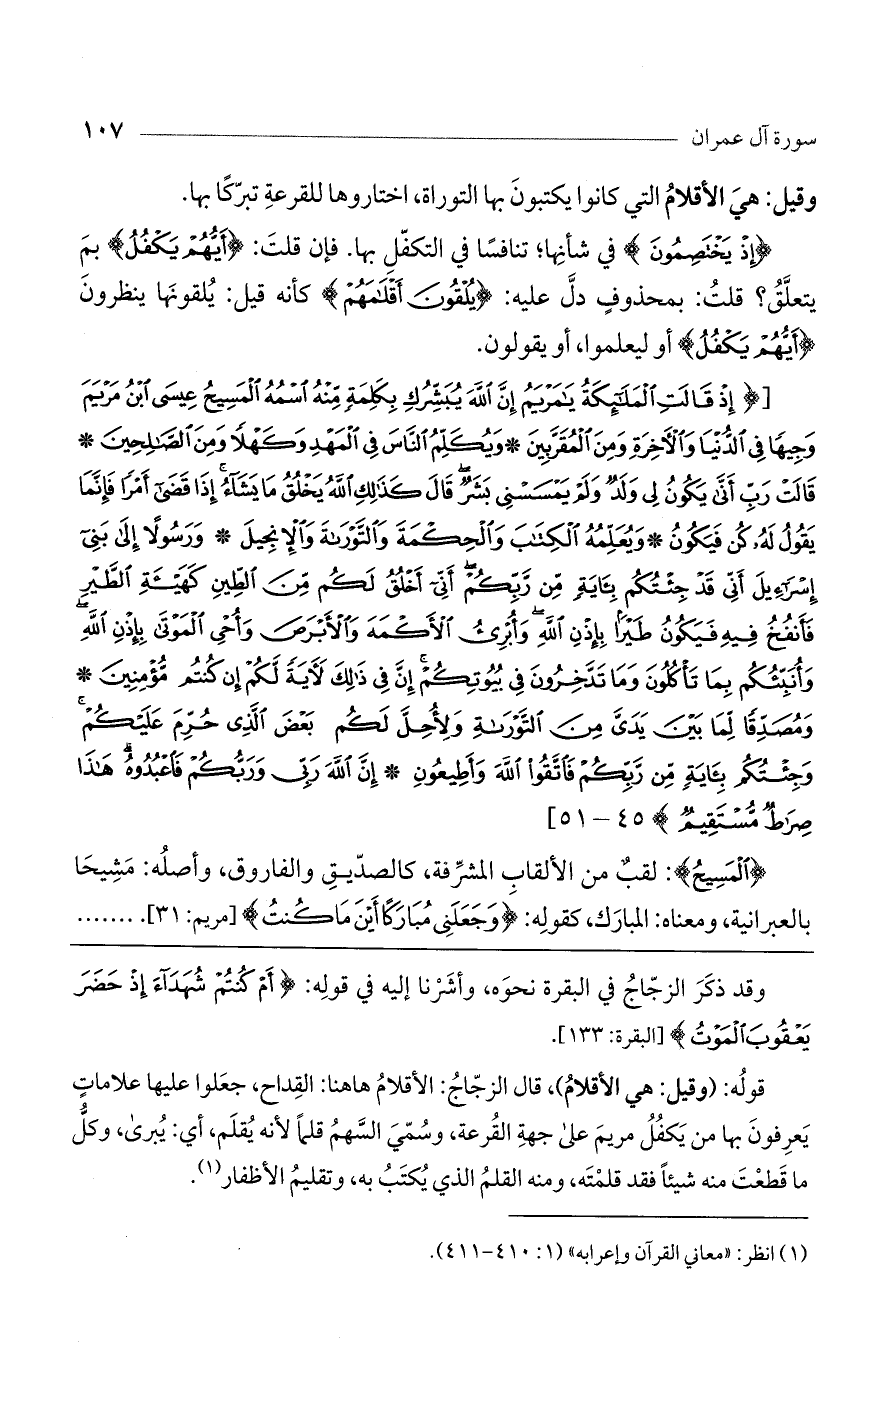 سورة آل عمران ١٠٧
وقيل: هيَ الأقلامُ التي كانوا يكتبونَ بها التوراة، اختاروها للقرعةِ تبرّكًا بها.
﴿إِذْ يَخْتَصِمُونَ﴾ في شأنِها؛ تنافسًا في التكفّلِ بها. فإن قلتَ: ﴿أَيُّهُمْ يَكْفُلُ﴾ بمَ
يتعلَّقُ؟ قلتُ: بمحذوفٍ دلَّ عليه: ﴿يُلْقُونَ أَقْلَٰمَهُمْ﴾ كأنه قيل: يُلقونَها ينظرونَ
﴿أَيُّهُمْ يَكْفُلُ﴾ أو ليعلموا، أو يقولون.
[﴿إِذْ قَالَتِ ٱلْمَلَٰٓئِكَةُ يَٰمَرْيَمُ إِنَّ ٱللَّهَ يُبَشِّرُكِ بِكَلِمَةٍ مِّنْهُ ٱسْمُهُ ٱلْمَسِيحُ عِيسَى ٱبْنُ مَرْيَمَ
وَجِيهًا فِي ٱلدُّنْيَا وَٱلْأَخِرَةِ وَمِنَ ٱلْمُقَرَّبِينَ * وَيُكَلِّمُ ٱلنَّاسَ فِي ٱلْمَهْدِ وَكَهْلًا وَمِنَ ٱلصَّٰلِحِينَ *
قَالَتْ رَبِّ أَنَّىٰ يَكُونُ لِي وَلَدٌ وَلَمْ يَمْسَسْنِي بَشَرٌ ۖ قَالَ كَذَٰلِكِ ٱللَّهُ يَخْلُقُ مَا يَشَآءُ ۚ إِذَا قَضَىٰٓ أَمْرًا فَإِنَّمَا
يَقُولُ لَهُۥ كُن فَيَكُونُ * وَيُعَلِّمُهُ ٱلْكِتَٰبَ وَٱلْحِكْمَةَ وَٱلتَّوْرَىٰةَ وَٱلْإِنجِيلَ * وَرَسُولًا إِلَىٰ بَنِيٓ
إِسْرَٰٓءِيلَ أَنِّي قَدْ جِئْتُكُم بِـَٔايَةٍ مِّن رَّبِّكُمْ ۖ أَنِّيٓ أَخْلُقُ لَكُم مِّنَ ٱلطِّينِ كَهَيْـَٔةِ ٱلطَّيْرِ
فَأَنفُخُ فِيهِ فَيَكُونُ طَيْرًا بِإِذْنِ ٱللَّهِ ۖ وَأُبْرِئُ ٱلْأَكْمَهَ وَٱلْأَبْرَصَ وَأُحْيِ ٱلْمَوْتَىٰ بِإِذْنِ ٱللَّهِ ۖ
وَأُنَبِّئُكُم بِمَا تَأْكُلُونَ وَمَا تَدَّخِرُونَ فِي بُيُوتِكُمْ ۚ إِنَّ فِي ذَٰلِكَ لَأَيَةً لَّكُمْ إِن كُنتُم مُّؤْمِنِينَ *
وَمُصَدِّقًا لِّمَا بَيْنَ يَدَيَّ مِنَ ٱلتَّوْرَىٰةِ وَلِأُحِلَّ لَكُم بَعْضَ ٱلَّذِي حُرِّمَ عَلَيْكُمْ ۚ
وَجِئْتُكُم بِـَٔايَةٍ مِّن رَّبِّكُمْ فَٱتَّقُوا۟ ٱللَّهَ وَأَطِيعُونِ * إِنَّ ٱللَّهَ رَبِّي وَرَبُّكُمْ فَٱعْبُدُوهُ ۗ هَٰذَا
صِرَٰطٌ مُّسْتَقِيمٌ﴾ ٤٥ – ٥١]
﴿ٱلْمَسِيحُ﴾: لقبٌ من الألقابِ المشرِّفة، كالصدّيقِ والفاروق، وأصلُه: مَشِيحَا
بالعبرانية، ومعناه: المبارَك، كقولِه: ﴿وَجَعَلَنِي مُبَارَكًا أَيْنَ مَا كُنتُ﴾ [مريم: ٣١]. .......
وقد ذكَرَ الزجّاجُ في البقرة نحوَه، وأشَرْنا إليه في قولِه: ﴿أَمْ كُنتُمْ شُهَدَآءَ إِذْ حَضَرَ
يَعْقُوبَ ٱلْمَوْتُ﴾ [البقرة: ١٣٣].
قولُه: (وقيل: هي الأقلامُ)، قال الزجّاجُ: الأقلامُ هاهنا: القِداح، جعَلوا عليها علاماتٍ
يَعرِفونَ بها من يَكفُلُ مريمَ علىٰ جهةِ القُرعة، وسُمّيَ السَّهمُ قلماً لأنه يُقلَم، أي: يُبرىٰ، وكلُّ
ما قَطعْتَ منه شيئاً فقد قلمْتَه، ومنه القلمُ الذي يُكتَبُ به، وتقليمُ الأظفار(١).
(١) انظر: «معاني القرآن وإعرابه» (١: ٤١٠-٤١١).